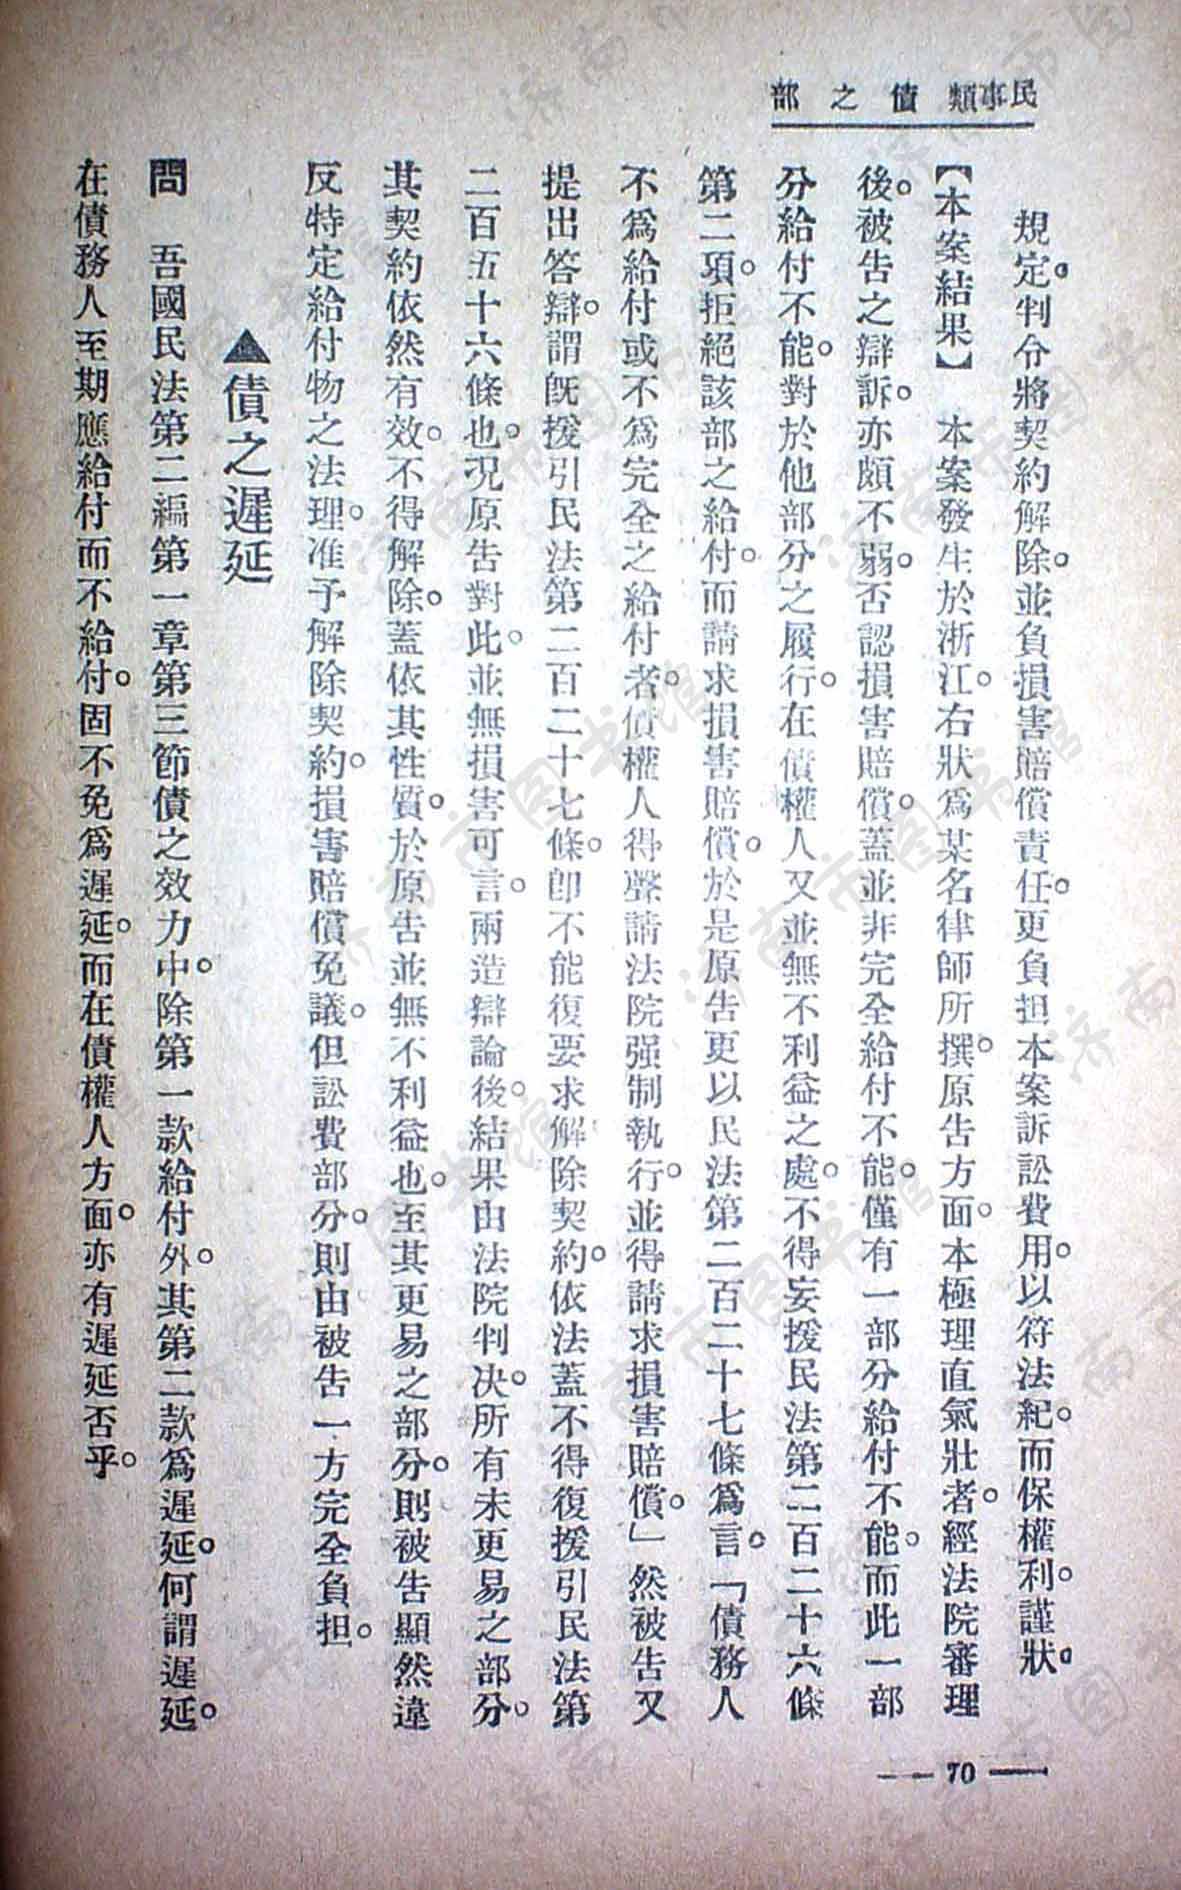 民事類　債之部
規定。判令將契約解除。並負損害賠償責任。更負担本案訴訟費用。以符法紀。而保權利。謹狀。
【本案結果】　本案發生於浙江。右狀爲某名律師所撰。原告方面。本極理直氣壯者。經法院審理
後。被告之辯訴。亦頗不弱。否認損害賠償。蓋並非完全給付不能。僅有一部分給付不能。而此一部
分給付不能。對於他部分之履行。在債權人又並無不利益之處。不得妄援民法第二百二十六條
第二項。拒絕該部之給付。而請求損害賠償。於是原告更以民法第二百二十七條爲言。「債務人
不爲給付或不爲完全之給付者。債權人得聲請法院强制執行。並得請求損害賠償。」然被告又
提出答辯。謂既援引民法第二百二十七條。卽不能復要求解除契約。依法蓋不得復援引民法第
二百五十六條也。况原告對此。並無損害可言。兩造辯論後。結果由法院判决。所有未更易之部分。
其契約依然有效。不得解除。蓋依其性質。於原告並無不利益也。至其更易之部分。則被告顯然違
反特定給付物之法理。准予解除契約。損害賠償免議。但訟費部分。則由被告一方完全負担。
▲債之遲延
問　吾國民法第二編第一章第三節債之效力中。除第一款給付外。其第二款爲遲延。何謂遲延。
在債務人至期應給付而不給付。固不免爲遲延。而在債權人方面。亦有遲延否乎。
— 70 —
济南市图书馆